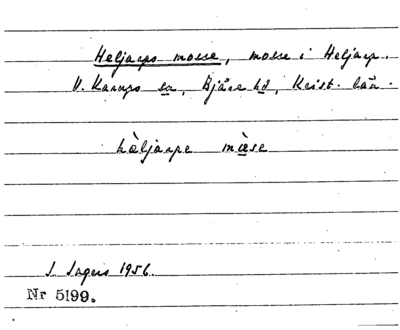 Heljarps mosse, mosse i Heljarp.
V. Karups sn, Bjäre hd, Krist. län.
hàljarpe mòse
J. Ingers 1956.
Nr 5199.